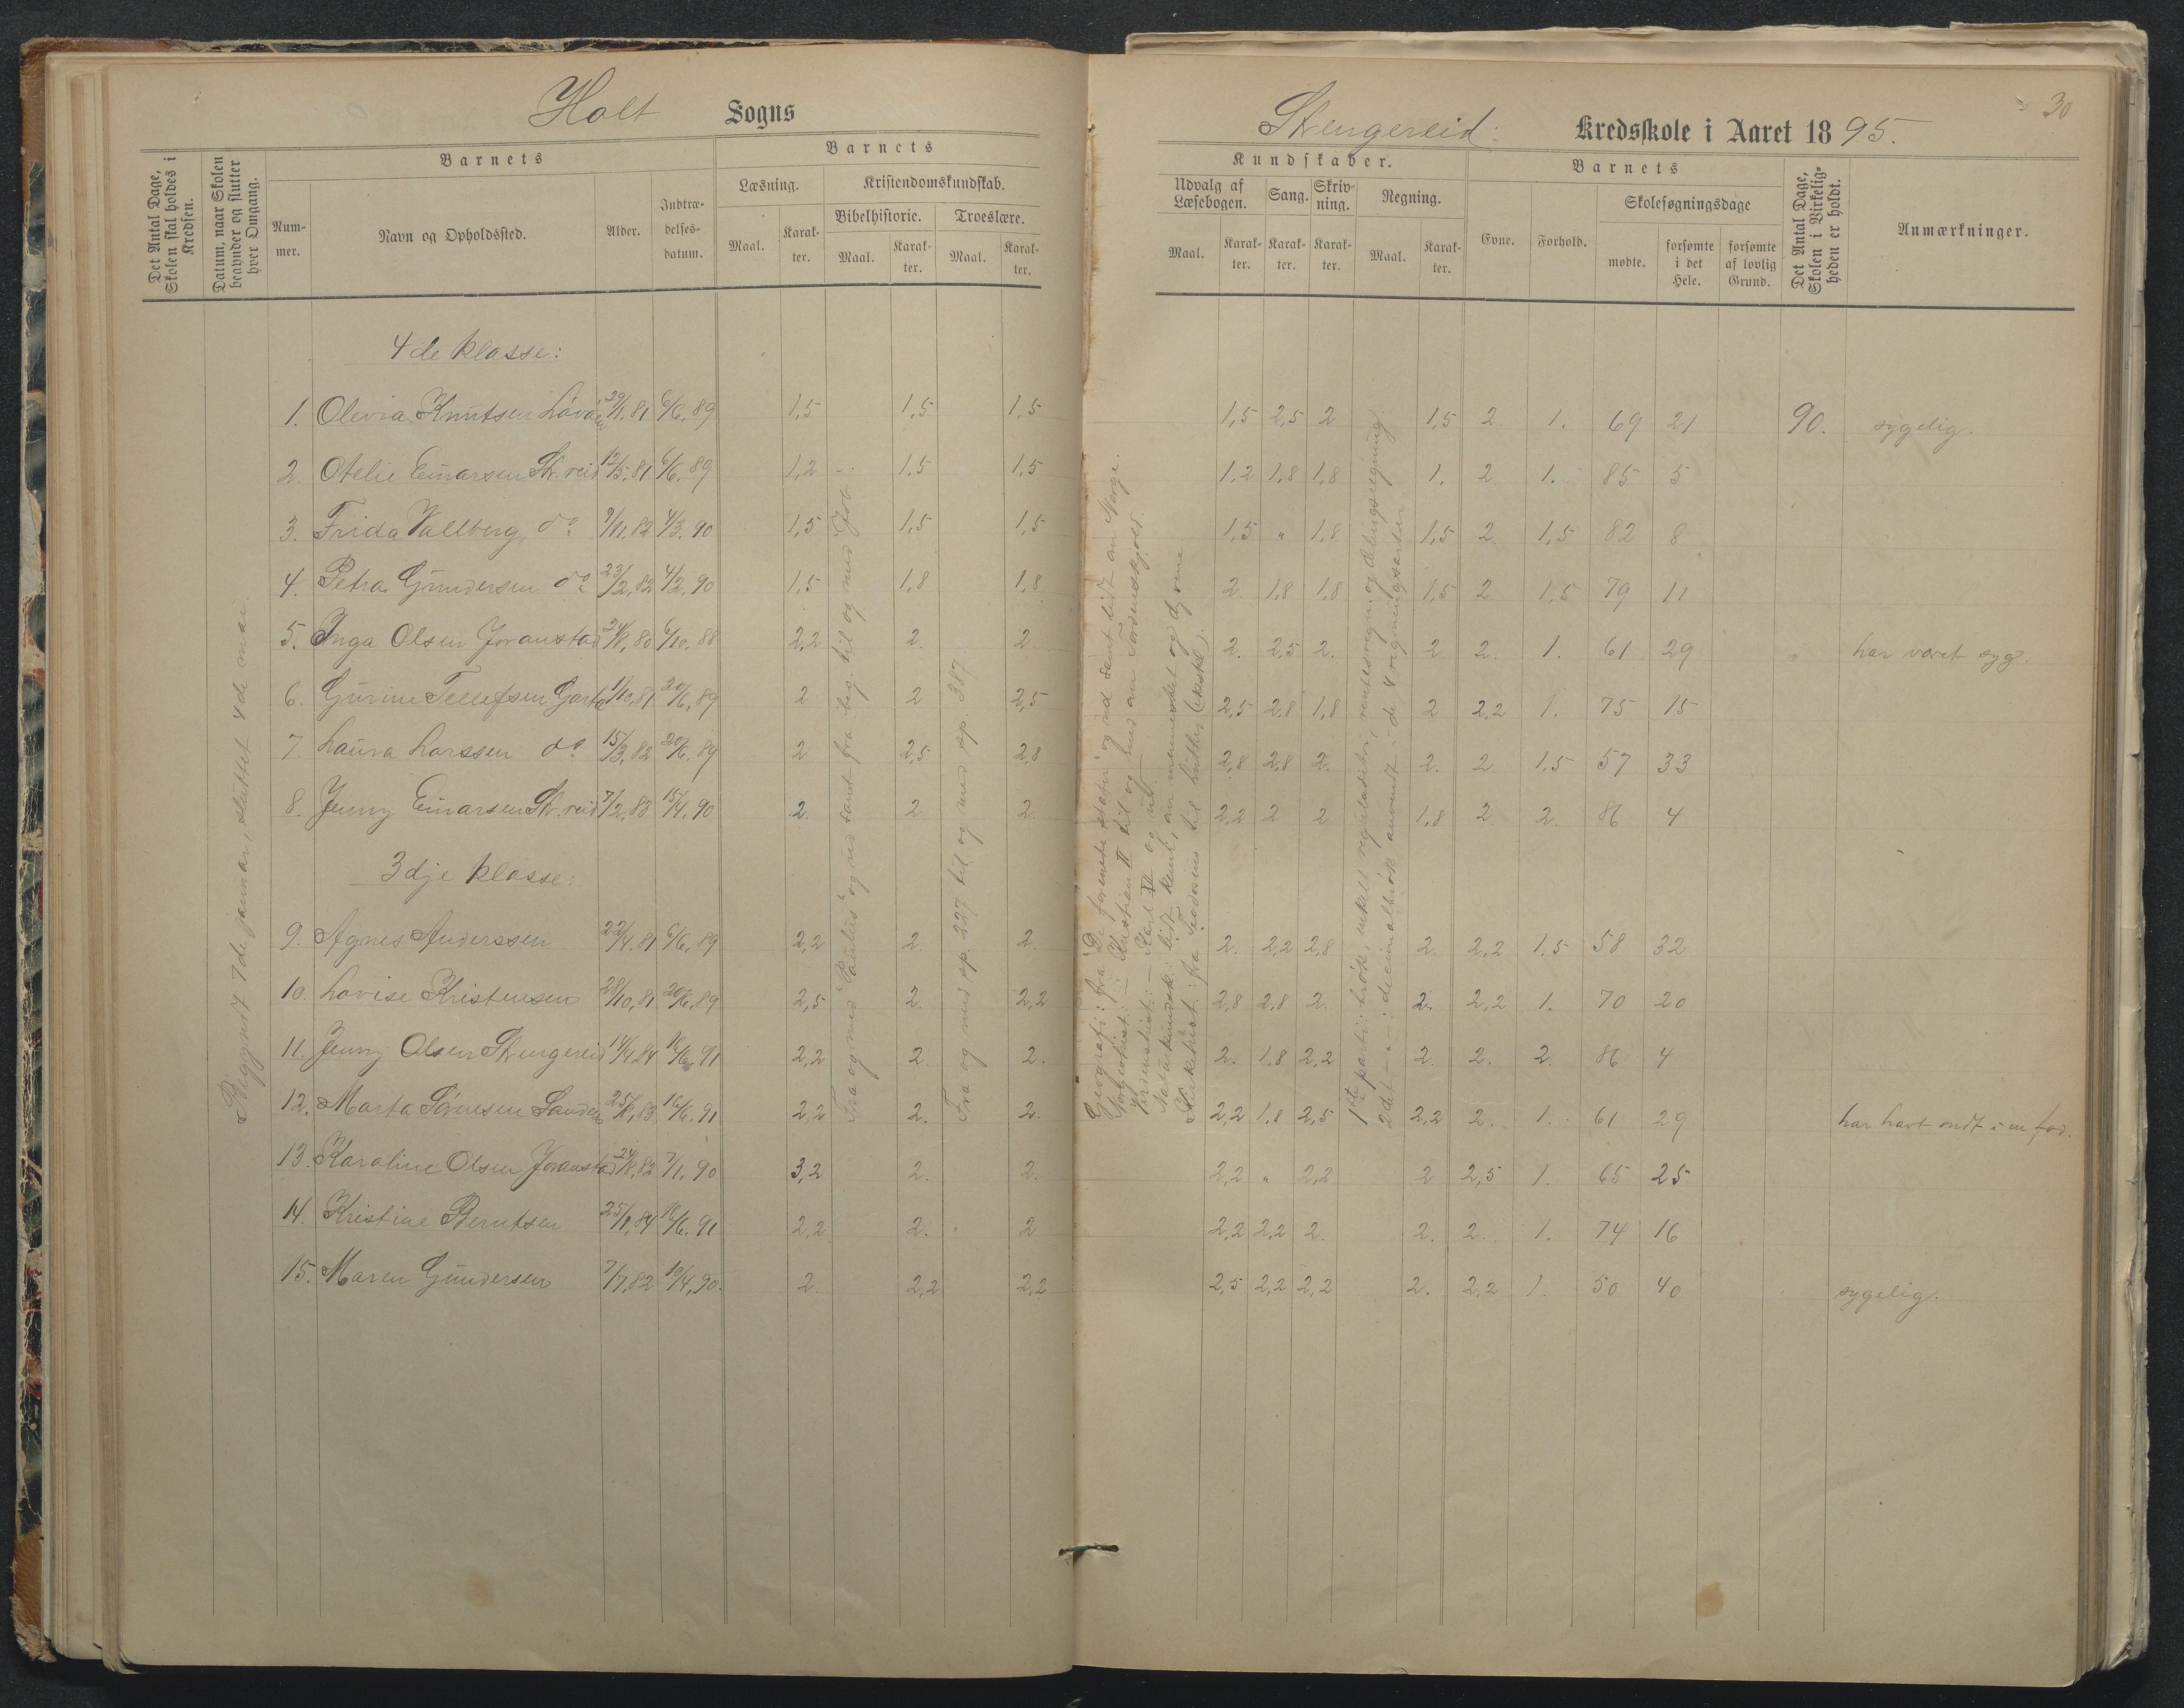 Holt Sogns
Det Antal Dage, Skolen skal holdes i Kredsen.
Datum, naar Skolen begynder og slutter hver Omgang.
Barnets
Nummer.
Navn og Opholdssted.
Alder.
Indtrædelsesdatum.
Barnets
Læsning.
Kristendomskundskab.
Bibelhistorie.
Troeslære.
Maal. Karakter. Maal. Karakter. Maal. Karakter.
Begyndt 7de januar, sluttet 4de mai.
4de klasse:
1. Olevia Knutsen 29/1,81 6/6,89 1,5 1,5 1,5
2. Otelie Einarsen Str.reid 12/5,81 6/6,89 1,2 1,5 1,5
3. Frida Vallberg, do 9/11,82 4/3,90 1,5 1,5 1,5
4. Petra Gundersen do 23/2,82 4/2,90 1,5 1,8 1,8
5. Inga Olsen Joranstad 24/8,80 6/10,88 2,2 2. 2
6. Gurine Tellefsen Garta 1/10,81 20/6,89 2 2 2,5
7. Laura Larssen do 15/3,82 20/6,89 2 2,5 2,8
8. Jenny Einarsen Str.reid 7/2,83 15/4,90 2. 2 2.
3dje klasse:
9. Agnes Anderssen 22/4,81 6/6,89 2,2 2. 2.
10. Lovise Kristensen 28/10,81 20/6,89 2,5 2. 2,2
11. Jenny Olsen Strengereid 14/4,84 16/6,91 2,2 2. 2.
12. Marta Sørensen 25/8,83 16/6,91 2,2 2. 2.
13. Karoline Olsen Joranstad 24/8,82 7/1,90 3,2 2. 2.
14. Kristine Berntsen 25/1,84 16/6,91 2,2 2. 2
15. Maren Gundersen 7/7,82 10/4,90. 2. 2,2 2,2
Fra og med "Paulus" og ud samt fra beg. til og med Job.
Fra og med sp. 227 til og med sp. 387.
30
Strengereid Kredsskole i Aaret 1895.
Kundskaber.
Udvalg af Læsebogen.
Sang.
Skrivning.
Regning.
Maal. Karakter. Karakter. Karakter. Maal. Karakter.
Barnets
Evne.
Forhold.
Skolesøgningsdage
mødte.
forsømte i det Hele.
forsømte af lovlig Grund.
Det Antal Dage, Skolen i Virkeligheden er holdt.
Anmærkninger.
Geografi: fra De forenede stater og ud samt lidt om Norge.
Norgeshist.: Kristian II til og med om Tordenskjold.
Verdenshist.: Karl XII og ud.
Naturkundsk.: lidt kemi, om mennesket og dyrene.
Kirkehist.: fra Teodosius til Luther
1ste parti: brøk, enkelt reguladetri, rentesregn. og delingsregning
2det — : decimalbrøk anvendt i de 4 regningsarter
1,5 2,5 2 1,5 2 1. 69 21 90. sygelig.
1,2 1,8 1,8 1. 2 1. 85 5
1,5 " 1,8 1,5 2. 1,5 82 8
2. 1,8 1,8 1,5 2. 1,5 79 11
2. 2,5 2. 2 2. 1. 61 29 har været syg
2,5 2,8 1,8 2 2,2 1. 75 15
2,8 2,8 2. 2. 2. 1,5 57 33
2,2 2 2 1,8 2 2. 86 4
2. 2,2 2,8 2 2,2 1.5 58 32
2,8 2,8 2. 2. 2,2 1. 70 20
2. 1,8 2,2 2. 2. 2. 86 4
2,2 1,8 2,5 2,2 2. 1. 61 29 har havt ondt i en fod.
2,2 " 2,2 2 2,5 1. 65 25
2,2 2,2 2. 2. 2. 1. 74 16
2,5 2,2 2,2 2. 2,2 1. 50 40 sygelig.